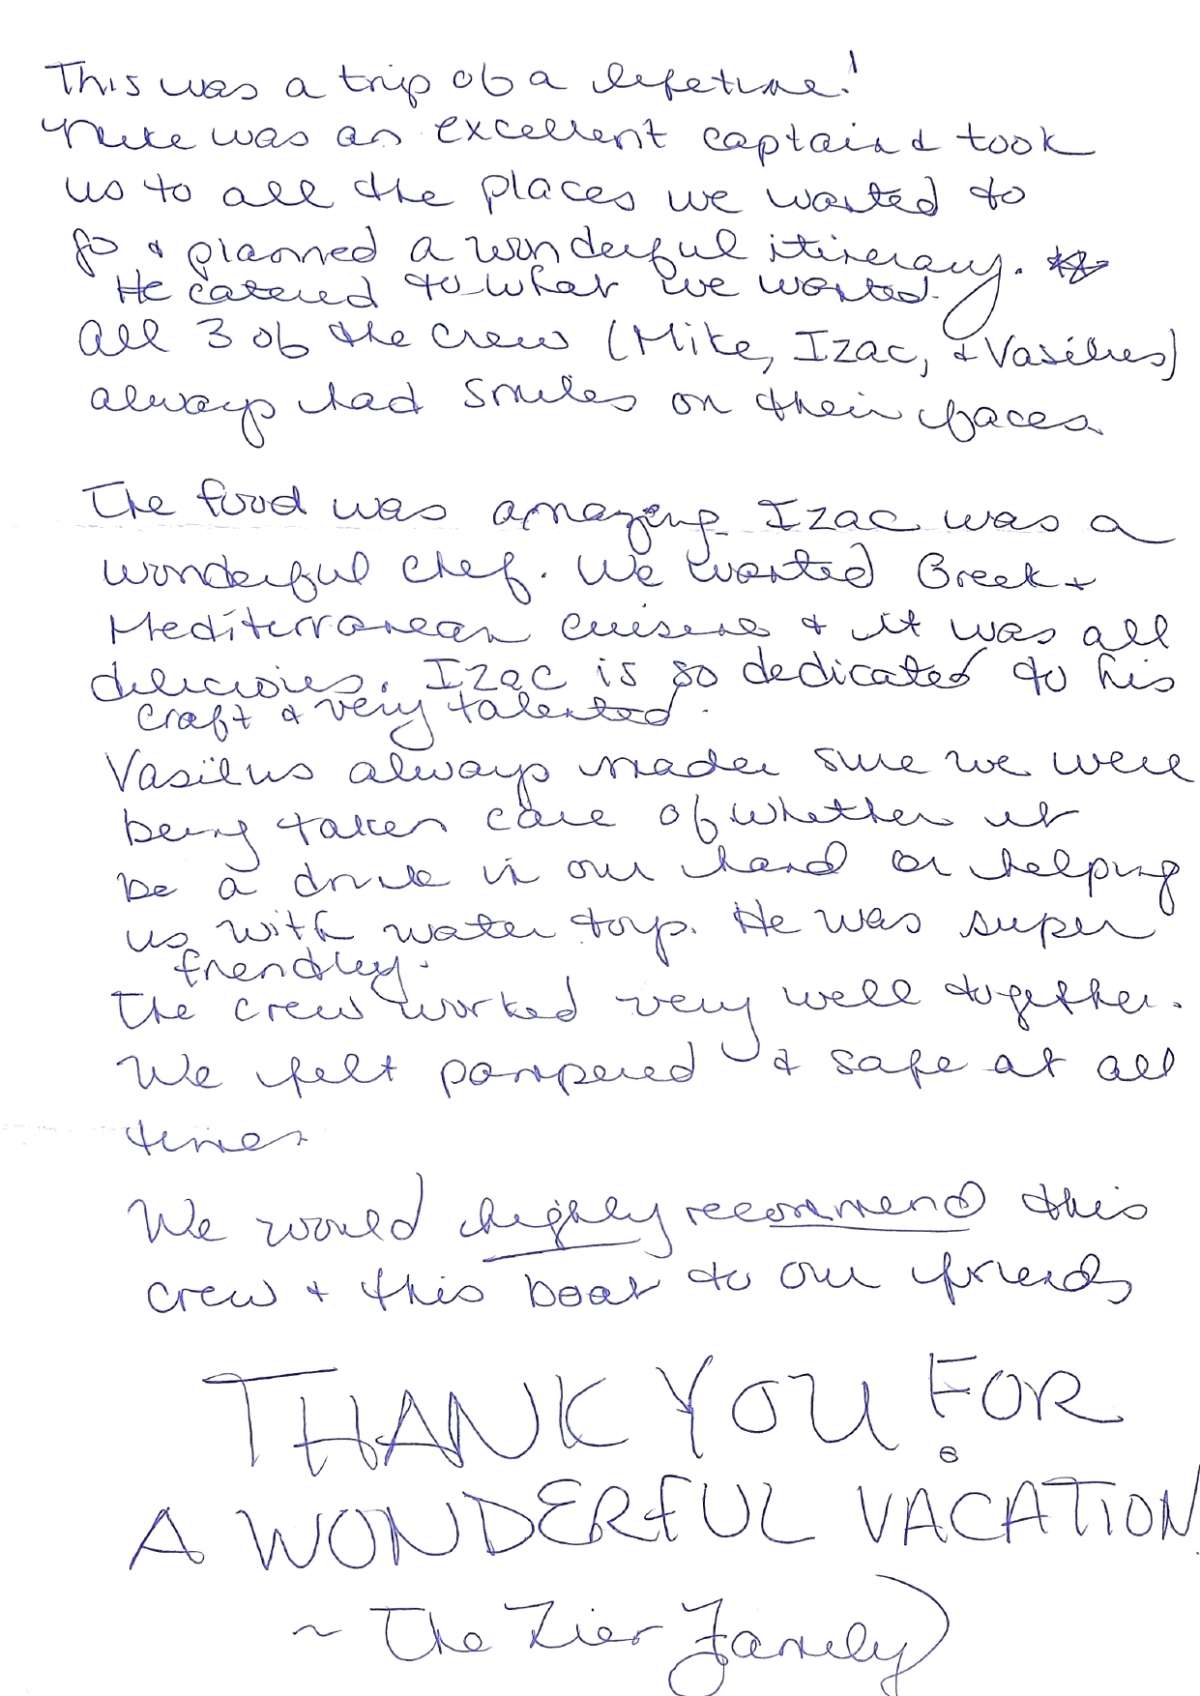 This was a trip of a lifetime!
Mike was an excellent captain & took
us to all the places we wanted to
go & planned a wonderful itinerary.
He catered to what we wanted.
All 3 of the crew (Mike, Izac, & Vasilius)
always had smiles on their faces.
The food was amazing. Izac was a
wonderful chef. We wanted Greek &
Mediterranean cuisine & it was all
delicious. Izac is so dedicated to his
craft & very talented.
Vasilius always made sure we were
being taken care of whether it
be a drink in our hand or helping
us with water toys. He was super
friendly.
The crew worked very well together.
We felt pampered & safe at all
times
We would highly recommend this
crew & this boat to our friends
THANK YOU FOR
A WONDERFUL VACATION
~ The Zier Family